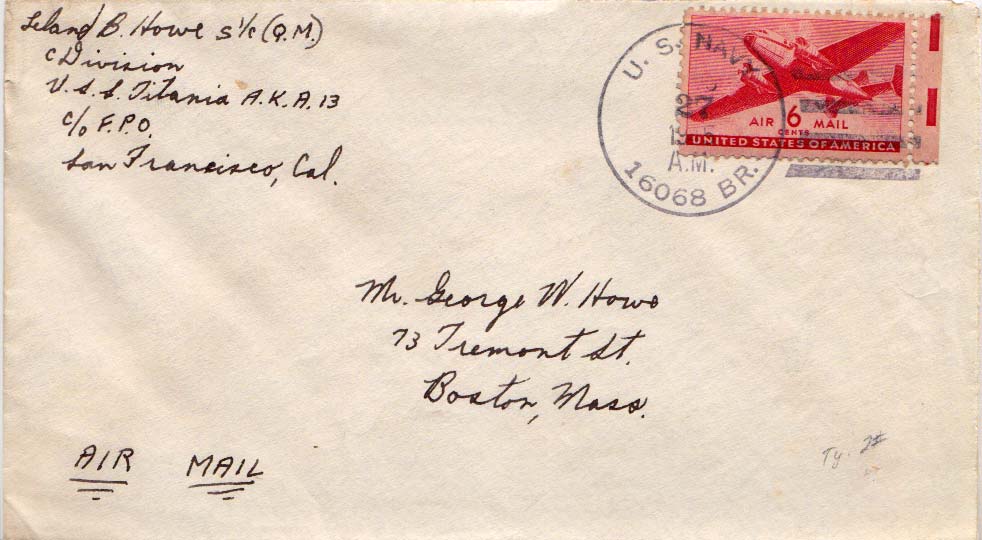 Leland B. Howe S 1/c (Q.M.)
C Division
U.S.S. Titania A.K.A. 13
c/o F.P.O.
San Francisco, Cal.
U. S. NAVY
27
A.M.
16068 BR.
AIR 6 MAIL
CENTS
UNITED STATES OF AMERICA
Mr. George W. Howe
73 Tremont St.
Boston, Mass.
AIR MAIL
Ty.